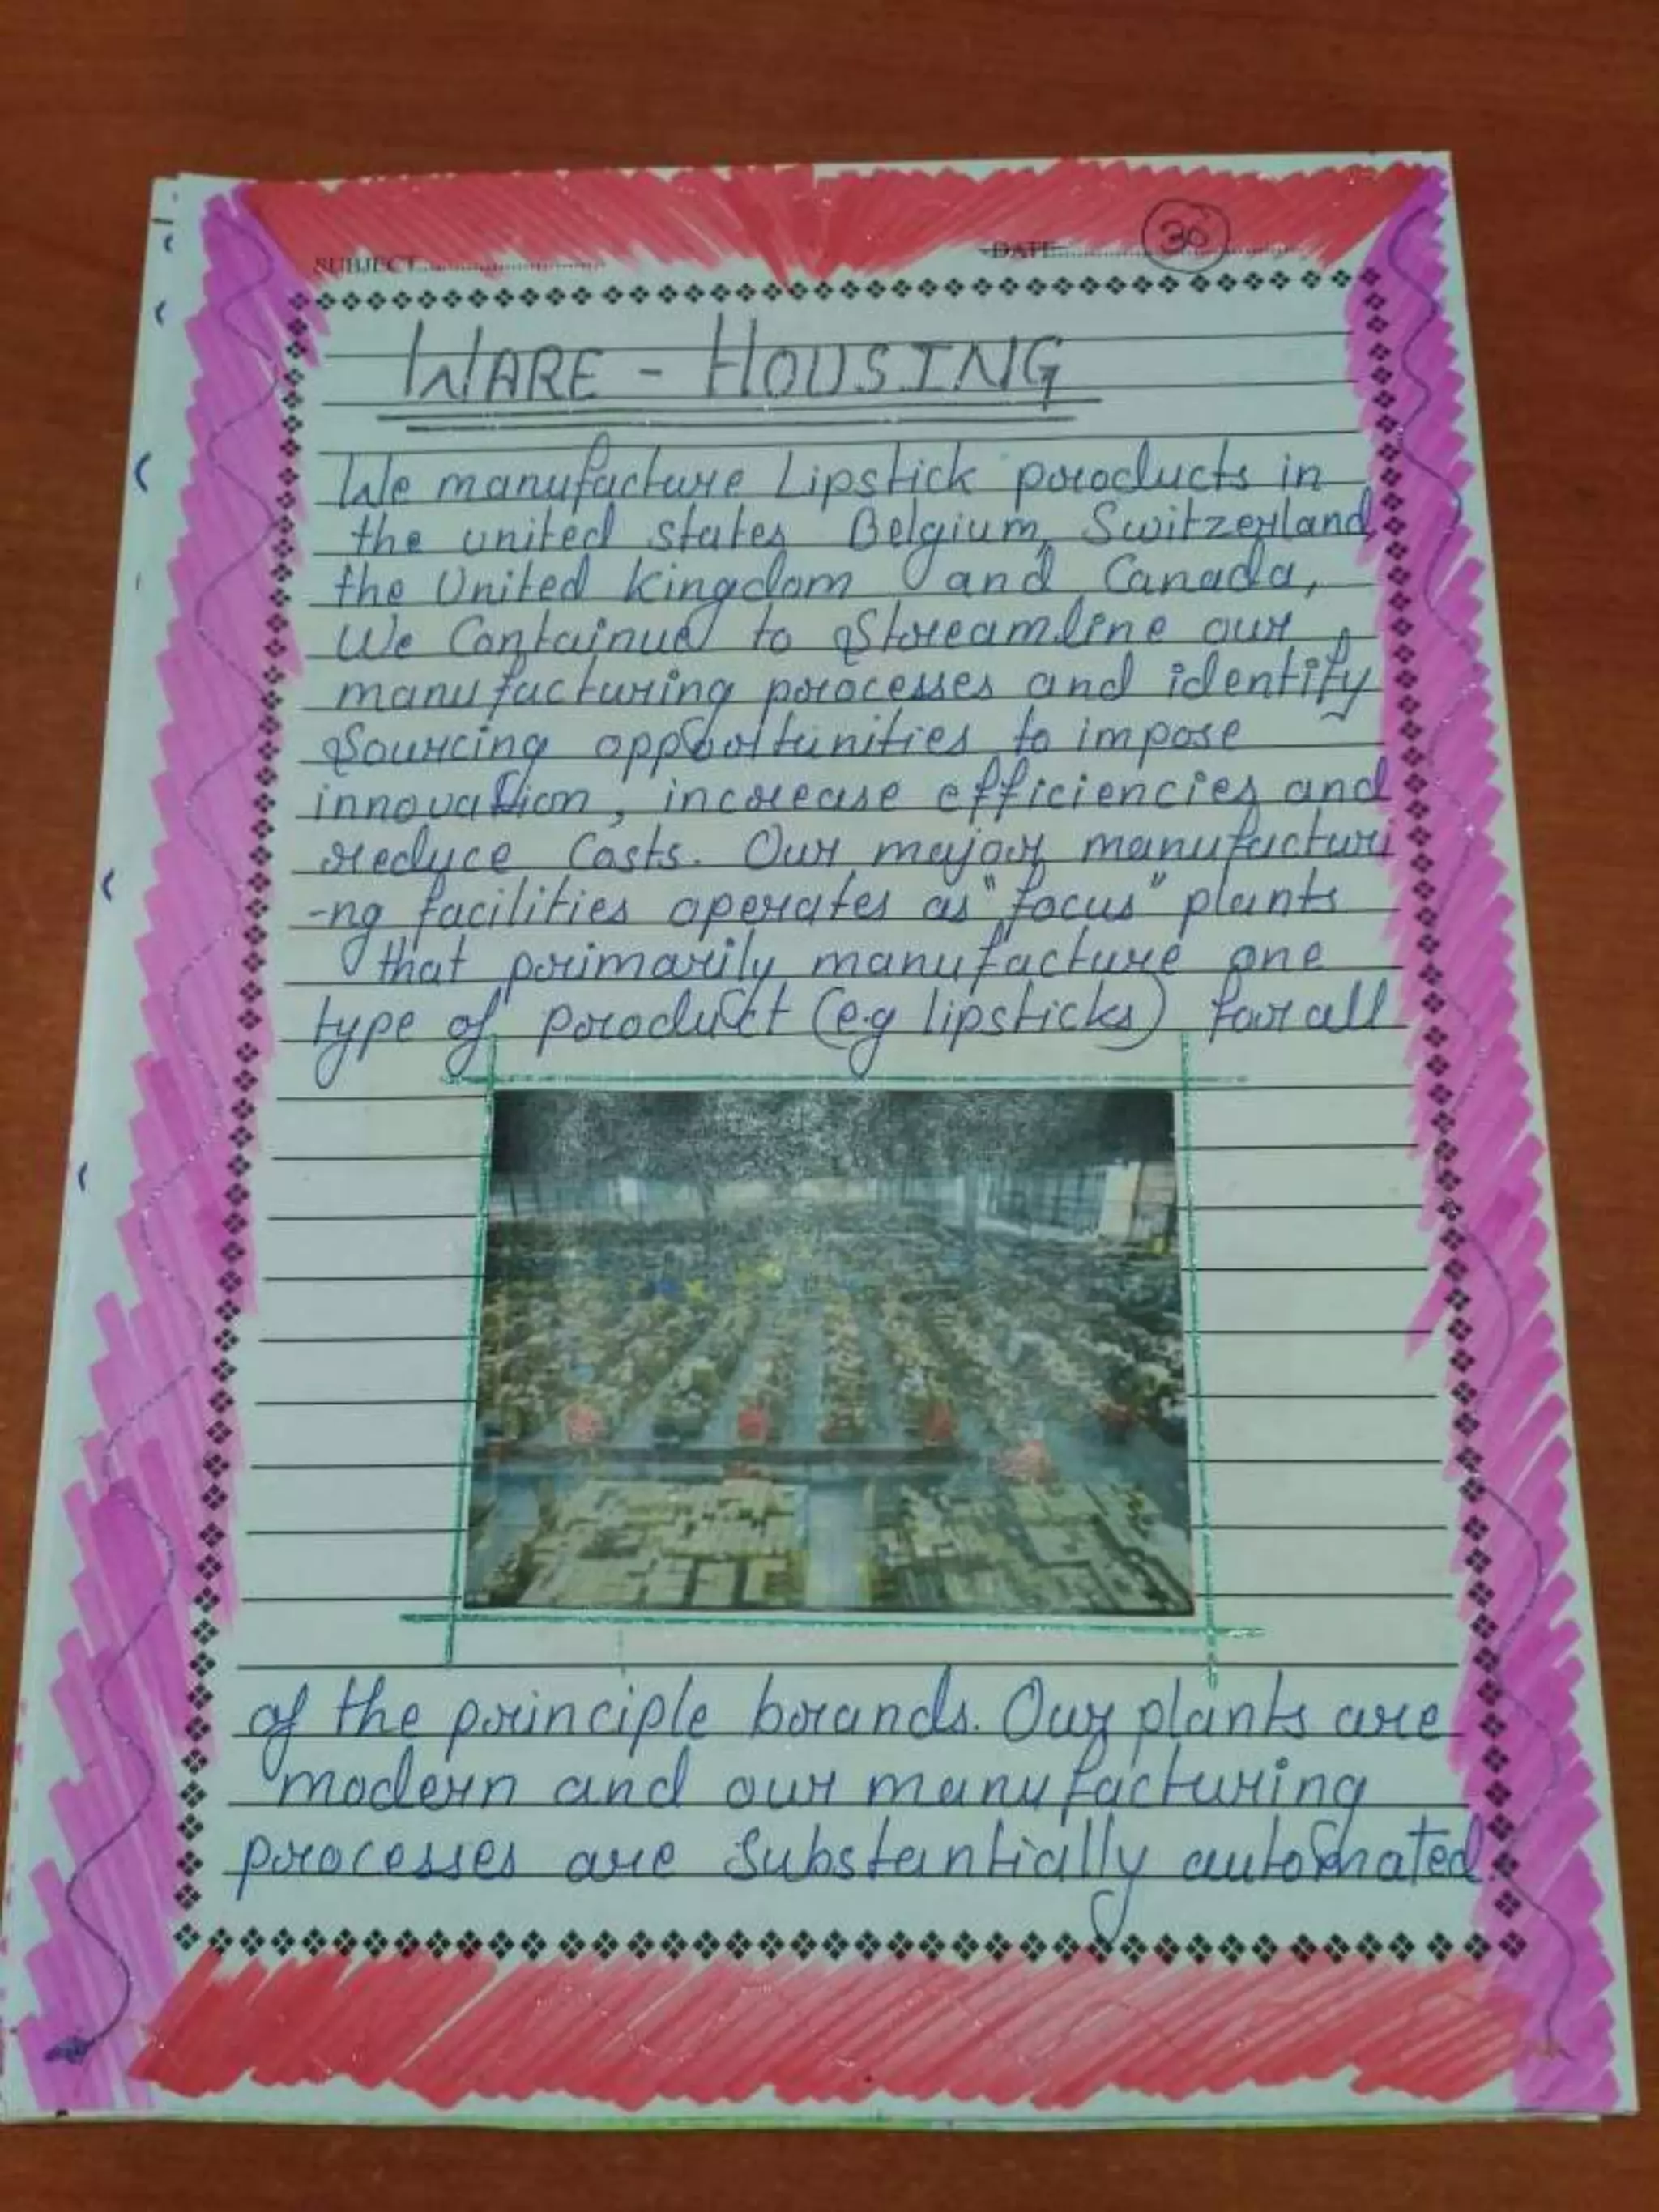 SUBJECT
DATE
30
WARE - HOUSING
We manufacture Lipstick products in
the united states, Belgium, Switzerland,
the United kingdom and Canada,
We Containue to Streamline our
manufacturing processes and identify
Sourcing opportunities to impose
innovation, increase efficiencies and
reduce Costs. Our major manufacturi
-ng facilities operates as "focus" plants
that primarily manufacture one
type of product (e.g lipsticks) for all
of the principle brands. Our plants are
modern and our manufacturing
processes are Substantially automated.